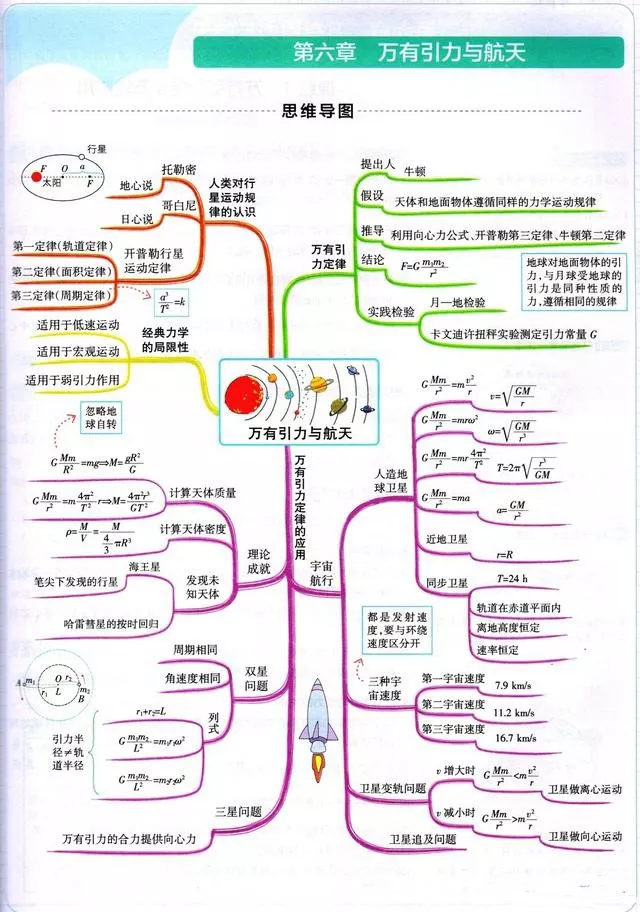 第六章 万有引力与航天
思维导图
行星
F O a
太阳 F
人类对行
星运动规
律的认识
托勒密
地心说
哥白尼
日心说
开普勒行星
运动定律
第一定律(轨道定律)
第二定律(面积定律)
第三定律(周期定律)
a³/T²=k
经典力学
的局限性
适用于低速运动
适用于宏观运动
适用于弱引力作用
万有引
力定律
提出人
牛顿
假设
天体和地面物体遵循同样的力学运动规律
推导
利用向心力公式、开普勒第三定律、牛顿第二定律
结论
F=G m₁m₂/r²
地球对地面物体的引
力,与月球受地球的
引力是同种性质的
力,遵循相同的规律
实践检验
月—地检验
卡文迪许扭秤实验测定引力常量 G
万有引力与航天
万有引力定律的应用
理论
成就
忽略地
球自转
计算天体质量
G Mm/R²=mg⇒M=gR²/G
G Mm/r²=m 4π²/T² r⇒M=4π²r³/GT²
计算天体密度
ρ=M/V=M/(4/3 πR³)
发现未
知天体
海王星
笔尖下发现的行星
哈雷彗星的按时回归
双星
问题
周期相同
角速度相同
列式
r₁+r₂=L
G m₁m₂/L²=m₁r₁ω²
G m₁m₂/L²=m₂r₂ω²
引力半
径≠轨
道半径
A m₁ r₁ O r₂ L m₂ B
三星问题
万有引力的合力提供向心力
宇宙
航行
人造地
球卫星
G Mm/r²=m v²/r
v=√(GM/r)
G Mm/r²=mrω²
ω=√(GM/r³)
G Mm/r²=mr 4π²/T²
T=2π√(r³/GM)
G Mm/r²=ma
a=GM/r²
近地卫星
r=R
同步卫星
T=24 h
轨道在赤道平面内
离地高度恒定
速率恒定
都是发射速
度,要与环绕
速度区分开
三种宇
宙速度
第一宇宙速度
7.9 km/s
第二宇宙速度
11.2 km/s
第三宇宙速度
16.7 km/s
卫星变轨问题
v 增大时
G Mm/r²<m v²/r
卫星做离心运动
v 减小时
G Mm/r²>m v²/r
卫星做向心运动
卫星追及问题